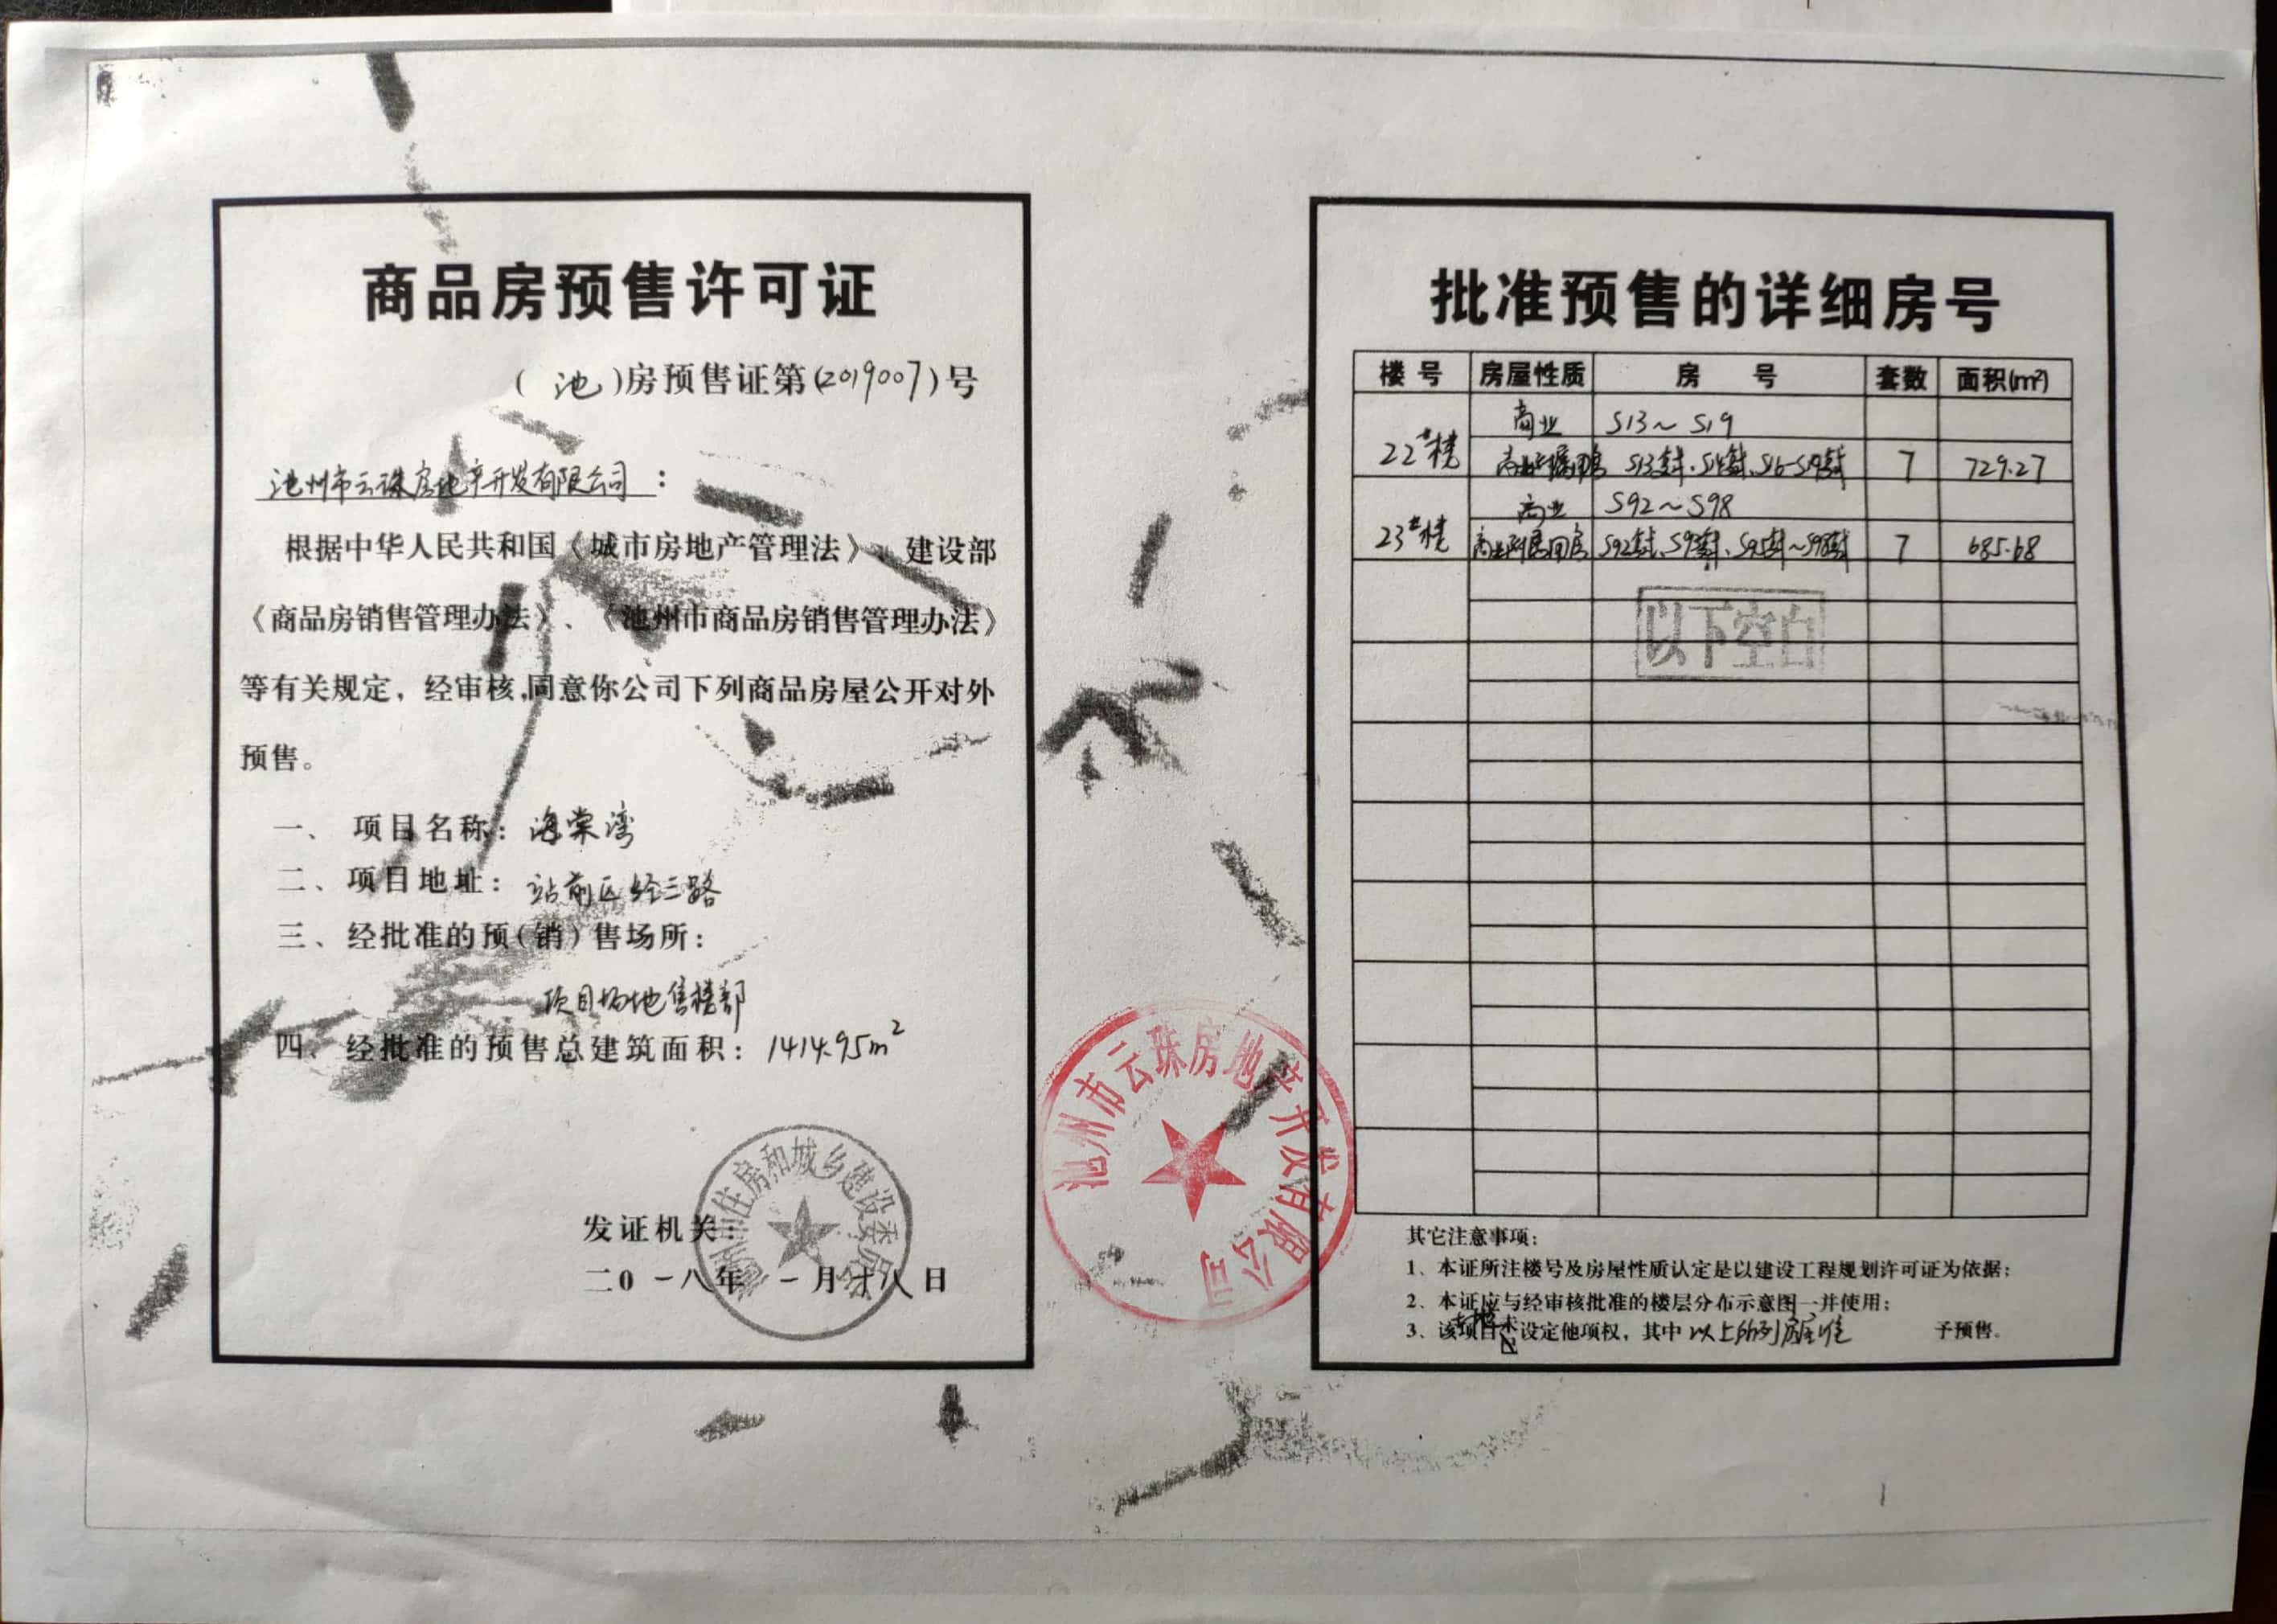 商品房预售许可证
(池)房预售证第(2019007)号
池州市云珠房地产开发有限公司:
根据中华人民共和国《城市房地产管理法》、建设部
《商品房销售管理办法》、《池州市商品房销售管理办法》
等有关规定，经审核,同意你公司下列商品房屋公开对外
预售。
一、项目名称:海棠湾
二、项目地址:站前区经三路
三、经批准的预(销)售场所:
项目场地售楼部
四、经批准的预售总建筑面积:1414.95m²
发证机关:
二0一八年一月十八日
池州市住房和城乡建设委员会
池州市云珠房地产开发有限公司
批准预售的详细房号
楼号 房屋性质 房号 套数 面积(m²)
22#楼 商业 S13～S19
7 729.27
23#楼 商业 S92～S98
商业附属用房 7 685.68
以下空白
其它注意事项:
1、本证所注楼号及房屋性质认定是以建设工程规划许可证为依据;
2、本证应与经审核批准的楼层分布示意图一并使用;
3、该项目未设定他项权，其中以上所列房屋准予预售。